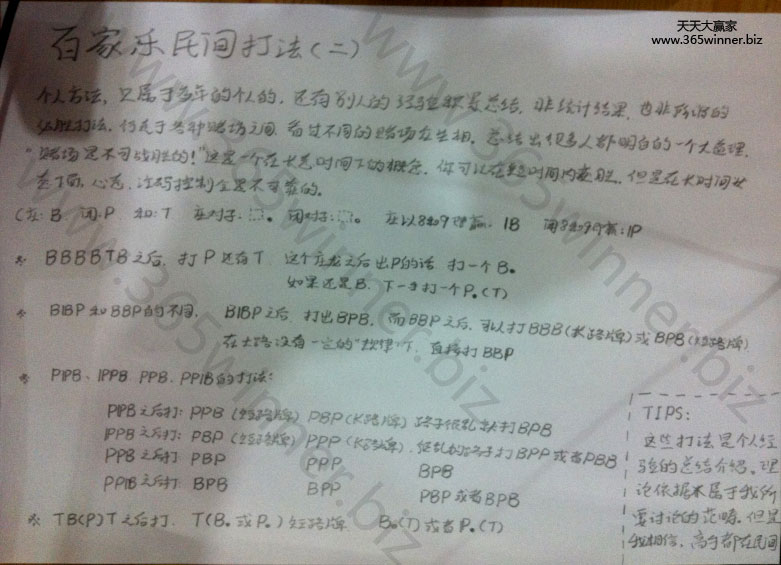 天天大赢家
www.365winner.biz
百家乐民间打法(二)
个人方法,只属于多年的个人的,还有别人的经验积累总结,非统计结果,也非所谓的
必胜打法,仍处于各种赌场之间,看过不同的赌场众生相,总结出很多人都明白的一个大道理,
"赌场是不可战胜的!"这是一个在长远时间下的概念,你可以在短时间内赢胜,但是在长时间上
心态,注码控制全是不可靠的。
(庄:B 闲:P 和:T 庄对子: 闲对子: 庄以8和9 赢:1B 闲8和9 赢:1P
※ BBBBTB之后,打P还有T,这个庄龙之后出P的话,打一个B。
如果还是B,下一手打一个P。(T)
※ B1BP和BBP的不同, B1BP之后,打出BPB,而BBP之后,可以打BBB(长路牌)或BPB(短路牌)
在大路没有一定的"规律"下,直接打BBP
※ P1PB、1PPB、PPB、PP1B的打法:
P1PB之后打: PPB(短路牌) PBP(长路牌) 路子很乱就打BPB
1PPB之后打: PBP(短路牌) PPP(长路牌),很乱的路子打BPP或者PBB
PPB之后打 PBP PPP BPB
PP1B之后打 BPB BPP PBP或者BPB
※ TB(P)T之后打, T(B。或P。)短路牌 B。(T)或者P。(T)
TIPS:
这些打法是个人经
验的总结介绍。理
论依据不属于我所
要讨论的范畴。但是
我相信,高手都在民间
www.365winner.biz
www.365winner.biz
www.365winner.biz